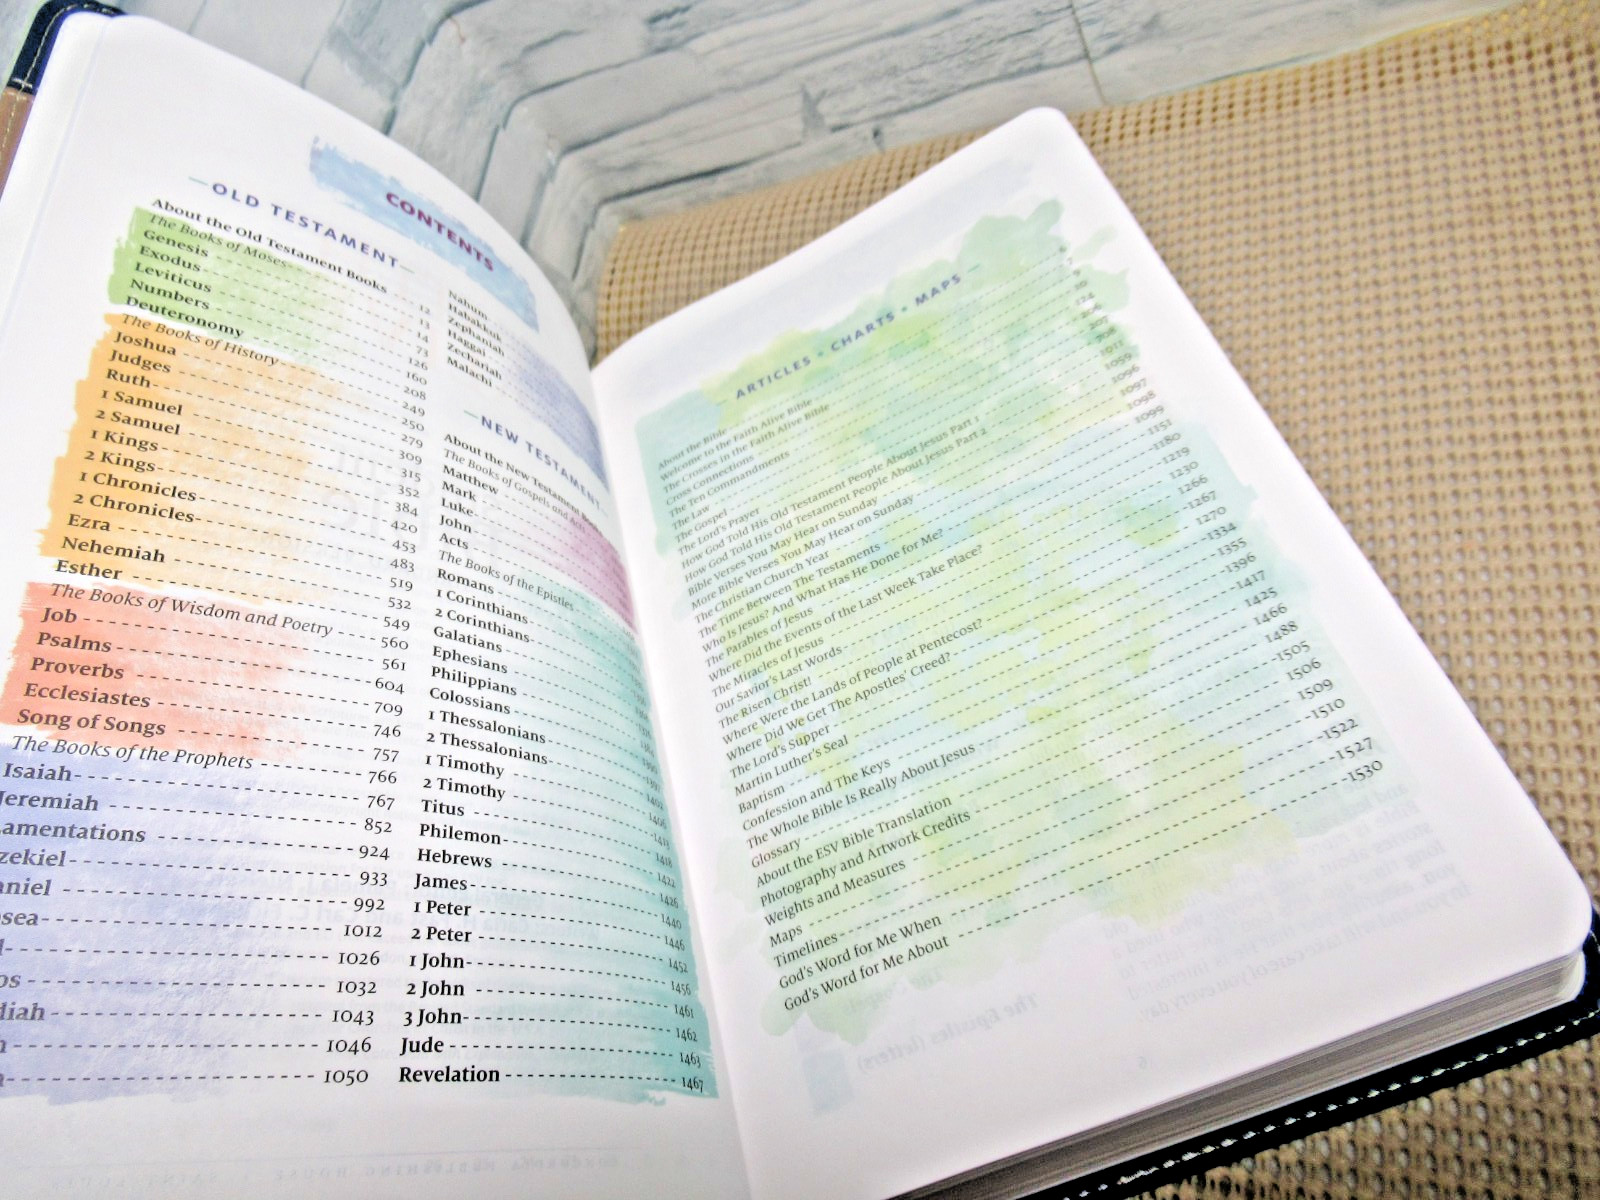 CONTENTS
—OLD TESTAMENT—
About the Old Testament Books 12
The Books of Moses 13
Genesis 14
Exodus 73
Leviticus 126
Numbers 160
Deuteronomy 208
The Books of History 249
Joshua 250
Judges 279
Ruth 309
1 Samuel 315
2 Samuel 352
1 Kings 384
2 Kings 420
1 Chronicles 453
2 Chronicles 483
Ezra 519
Nehemiah 532
Esther 549
The Books of Wisdom and Poetry 560
Job 561
Psalms 604
Proverbs 709
Ecclesiastes 746
Song of Songs 757
The Books of the Prophets 766
Isaiah 767
Jeremiah 852
amentations 924
zekiel 933
aniel 992
sea 1012
1026
os 1032
diah 1043
1046
1050
Nahum
Habakkuk
Zephaniah
Haggai
Zechariah
Malachi
—NEW TESTAMENT
About the New Testament Books
The Books of Gospels and Acts
Matthew
Mark
Luke
John
Acts
The Books of the Epistles
Romans
1 Corinthians
2 Corinthians
Galatians
Ephesians
Philippians
Colossians
1 Thessalonians
2 Thessalonians
1 Timothy 1406
2 Timothy 1413
Titus 1418
Philemon 1422
Hebrews 1426
James 1440
1 Peter 1446
2 Peter 1452
1 John 1456
2 John 1461
3 John 1462
Jude 1463
Revelation 1467
ARTICLES • CHARTS • MAPS —
About the Bible
Welcome to the Faith Alive Bible
The Crosses in the Faith Alive Bible
Cross Connections
The Ten Commandments
The Law
The Gospel
The Lord's Prayer
How God Told His Old Testament People About Jesus Part 1 1011
How God Told His Old Testament People About Jesus Part 2 1059
Bible Verses You May Hear on Sunday 1096
More Bible Verses You May Hear on Sunday 1097
The Christian Church Year 1098
The Time Between The Testaments 1099
Who Is Jesus? And What Has He Done for Me? 1151
The Parables of Jesus 1180
Where Did the Events of the Last Week Take Place? 1219
The Miracles of Jesus 1230
Our Savior's Last Words 1266
The Risen Christ! 1267
Where Were the Lands of People at Pentecost? 1270
Where Did We Get The Apostles' Creed? 1334
The Lord's Supper 1355
Martin Luther's Seal 1396
Baptism 1417
Confession and The Keys 1425
The Whole Bible Is Really About Jesus 1466
Glossary 1488
About the ESV Bible Translation 1505
Photography and Artwork Credits 1506
Weights and Measures 1509
Maps 1510
Timelines 1522
God's Word for Me When 1527
God's Word for Me About 1530